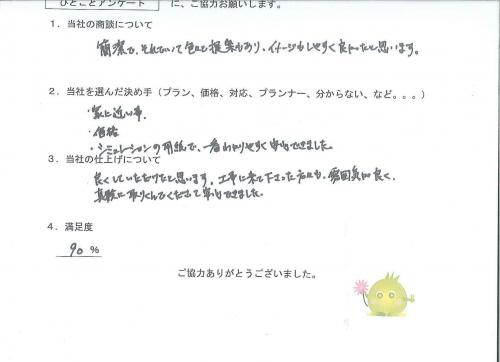 ひとことアンケート に、ご協力お願いします。
1．当社の商談について
簡潔で、それでいて色々と提案もあり、イメージもしやすく良かったと思います。
2．当社を選んだ決め手（プラン、価格、対応、プランナー、分からない、など。。。）
・家に近い事.
・価格
・シミュレーションの用紙で、一番わかりやすく安心できました。
3．当社の仕上げについて
良くしていただけたと思います。工事に来て下さった方々も、雰囲気が良く、
真摯に取りくんでくださって安心できました。
4．満足度
90 %
ご協力ありがとうございました。